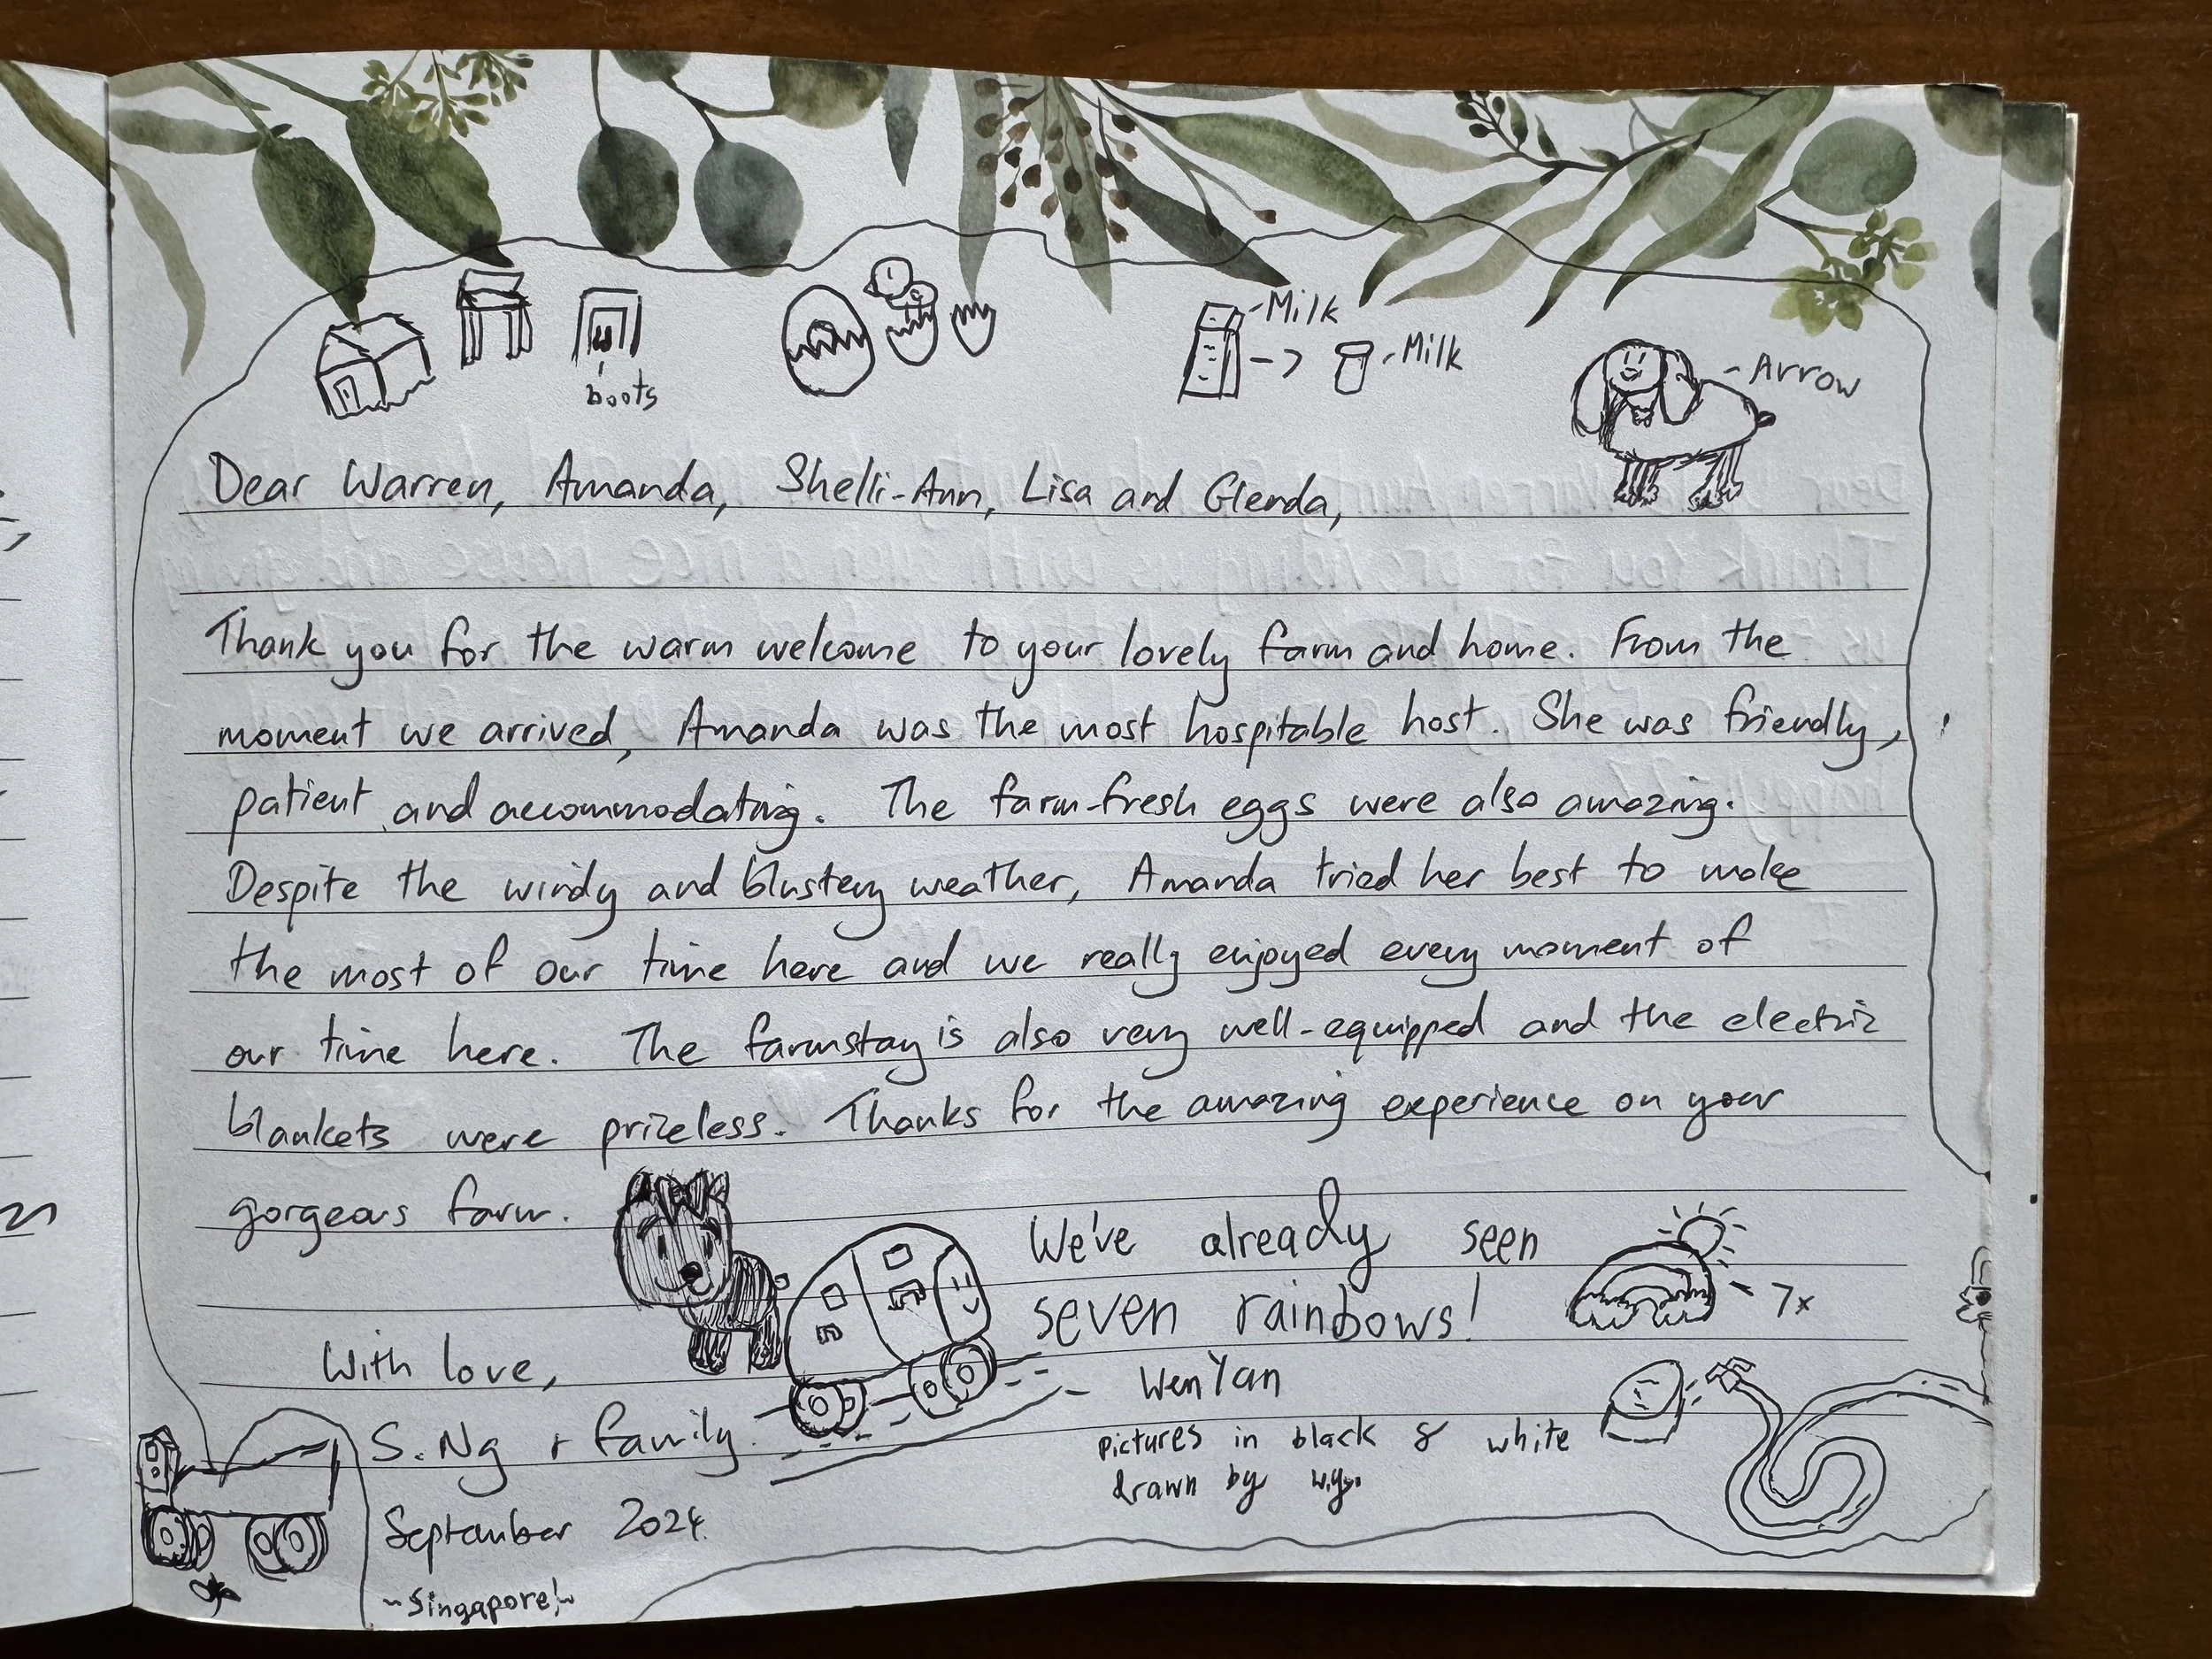 boots
Milk
Milk
Arrow
Dear Warren, Amanda, Shelli-Ann, Lisa and Glenda,
Thank you for the warm welcome to your lovely farm and home. From the
moment we arrived, Amanda was the most hospitable host. She was friendly,
patient and accommodating. The farm-fresh eggs were also amazing.
Despite the windy and blustery weather, Amanda tried her best to make
the most of our time here and we really enjoyed every moment of
our time here. The farmstay is also very well-equipped and the electric
blankets were priceless. Thanks for the amazing experience on your
gorgeous farm.
We've already seen
seven rainbows!
7x
With love,
S. Ng + family.
September 2024.
~Singapore!~
Wen Yan
pictures in black & white
drawn by w.y.